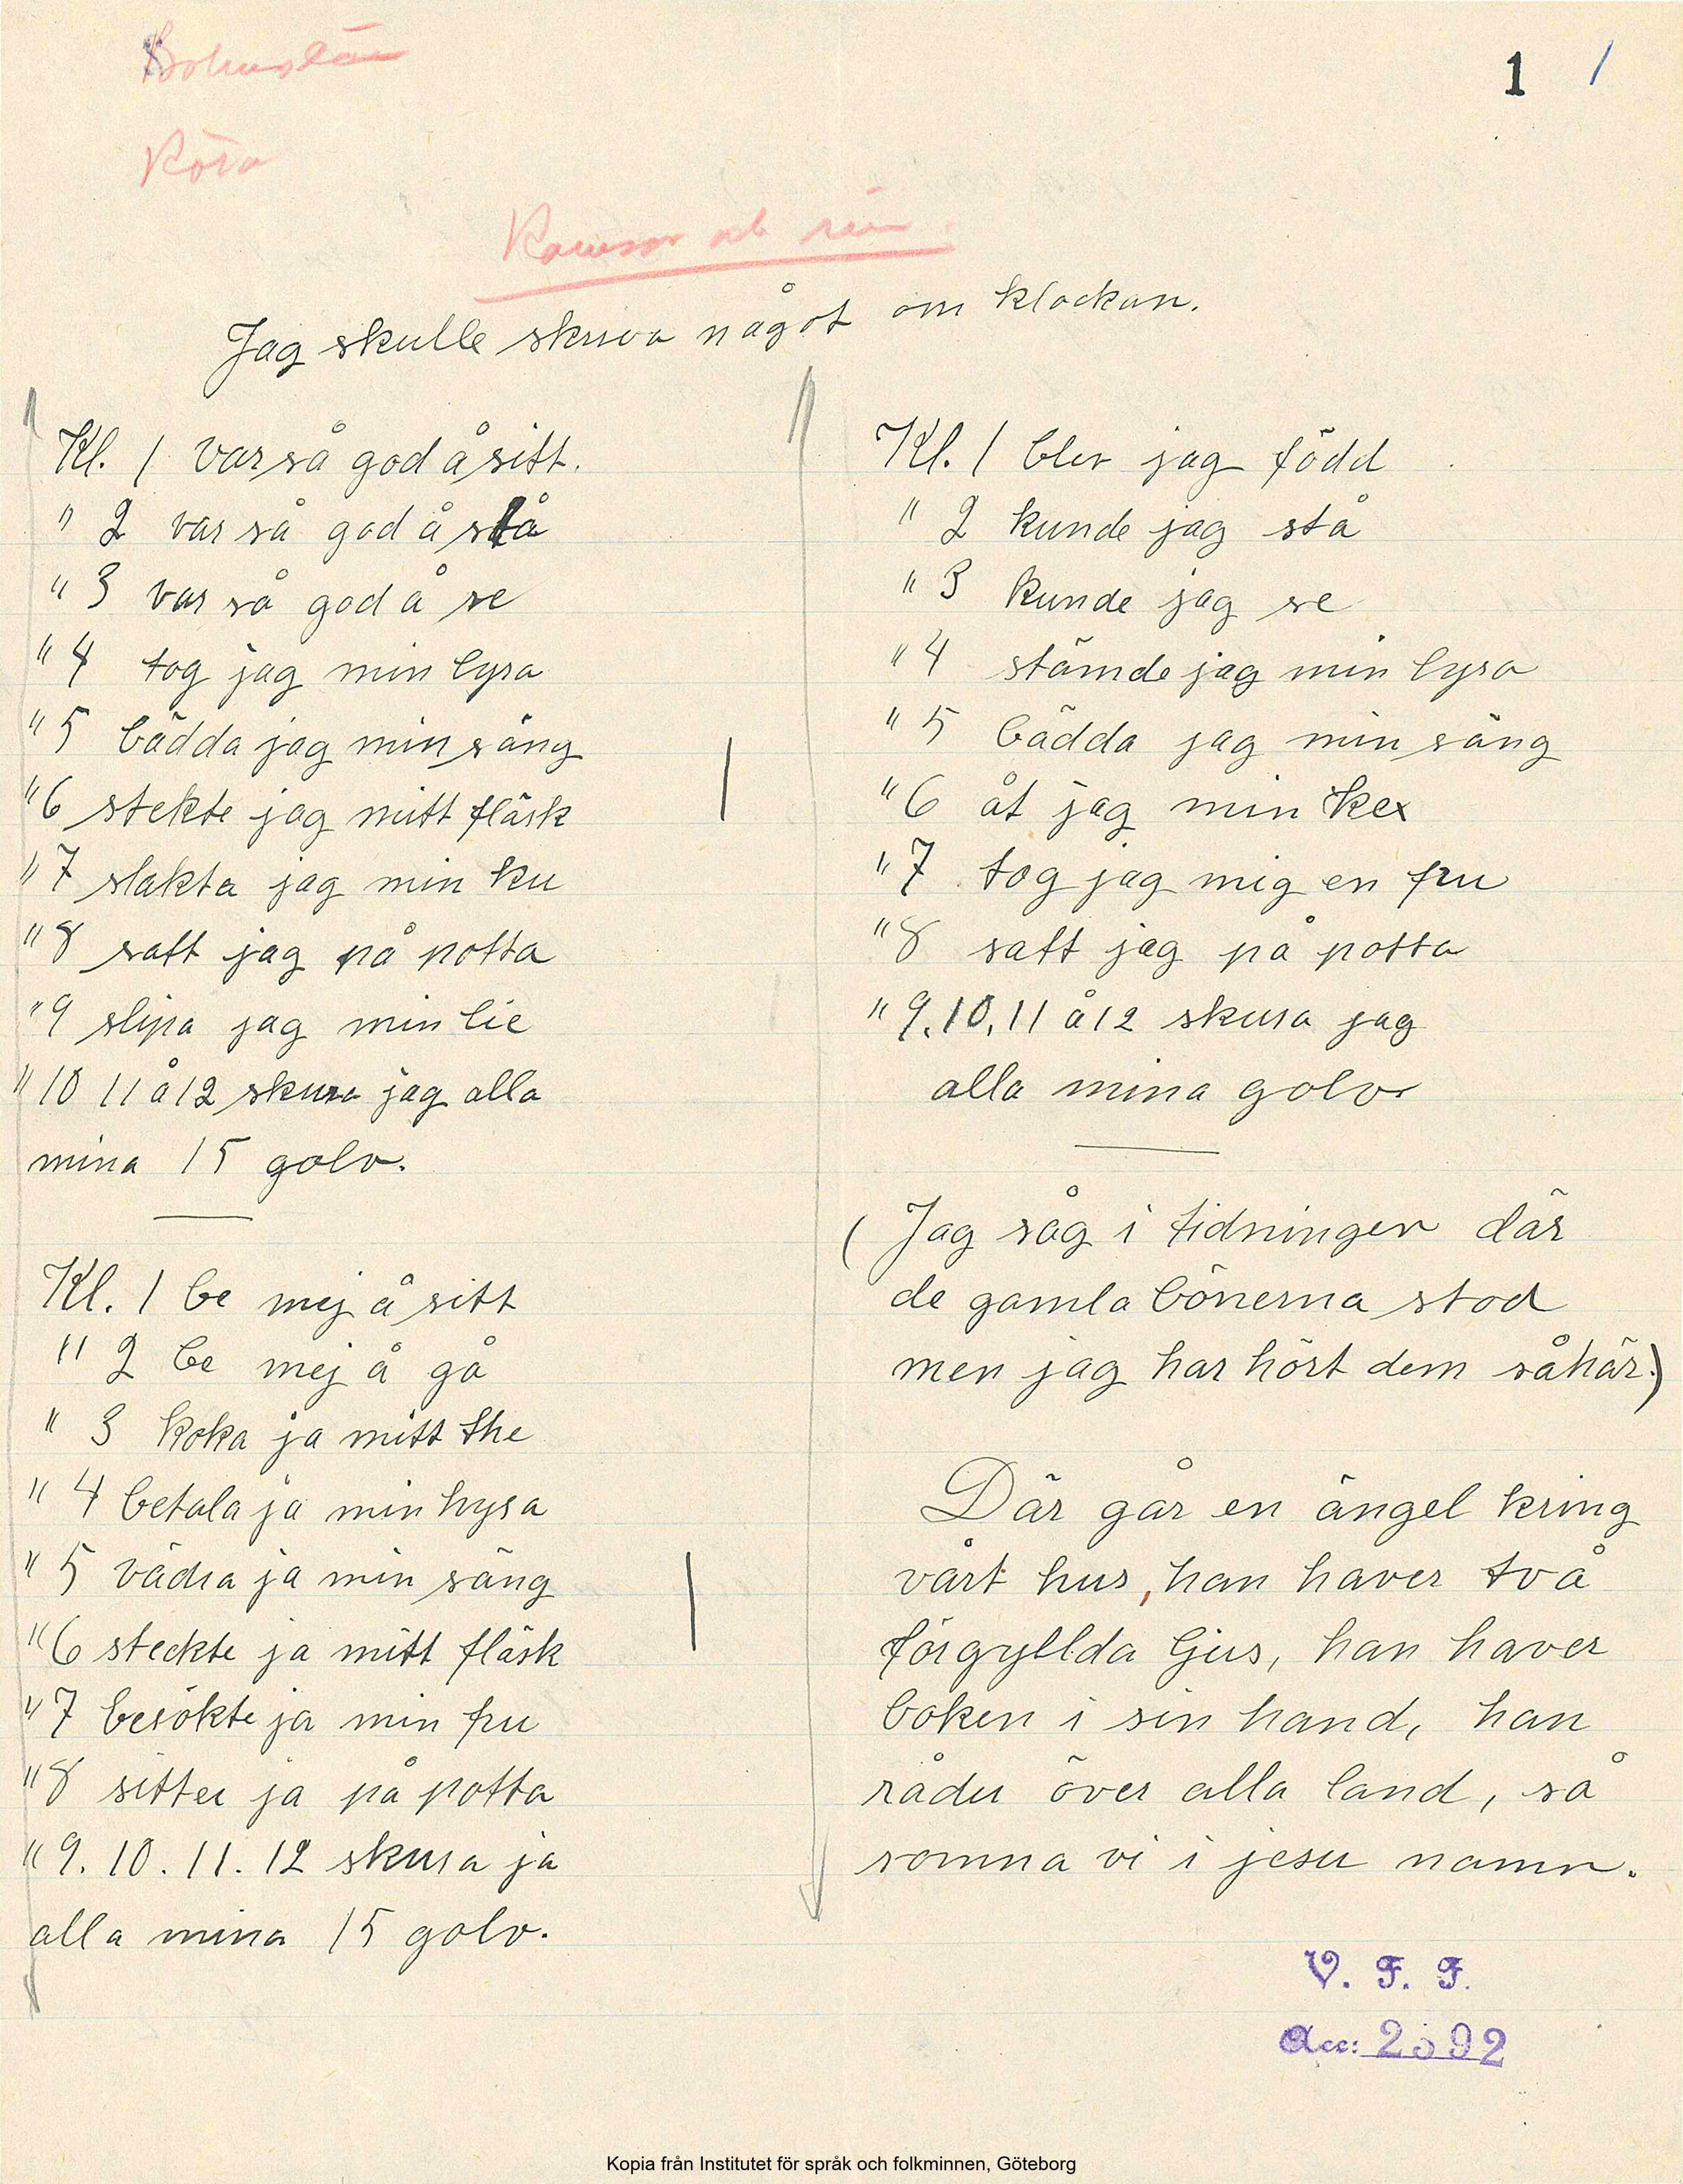 Bohuslän
1 /
Röra
Ramsor och rim
Jag skulle skriva något om klockan.
Kl. 1 var så god å sitt.
" 2 var så god å stå
" 3 var så god å se
" 4 tog jag min lyra
" 5 bädda jag min säng
" 6 stekte jag mitt fläsk
" 7 slakta jag min ku
" 8 satt jag på potta
" 9 slipa jag min lie
" 10 11 å 12 skura jag alla
mina 15 golv.
Kl. 1 be mej å sitt
" 2 be mej å gå
" 3 koka ja mitt the
" 4 betala ja min hysa
" 5 vädra ja min säng
" 6 steckte ja mitt fläsk
" 7 besökte ja min fru
" 8 sitter ja på potta
" 9. 10. 11. 12 skura ja
alla mina 15 golv.
Kl. 1 blev jag född
" 2 kunde jag stå
" 3 kunde jag se
" 4 stämde jag min lyra
" 5 bädda jag min säng
" 6 åt jag min kex
" 7 tog jag mig en fru
" 8 satt jag på potta
" 9. 10. 11 å 12 skura jag
alla mina golv
( Jag såg i tidningen där
de gamla bönerna stod
men jag har hört dem såhär.)
Där går en ängel kring
vårt hus, han haver två
förgyllda ljus, han haver
boken i sin hand, han
råder över alla land, så
somna vi i jesu namn.
V. F. F.
Acc: 2592
Kopia från Institutet för språk och folkminnen, Göteborg